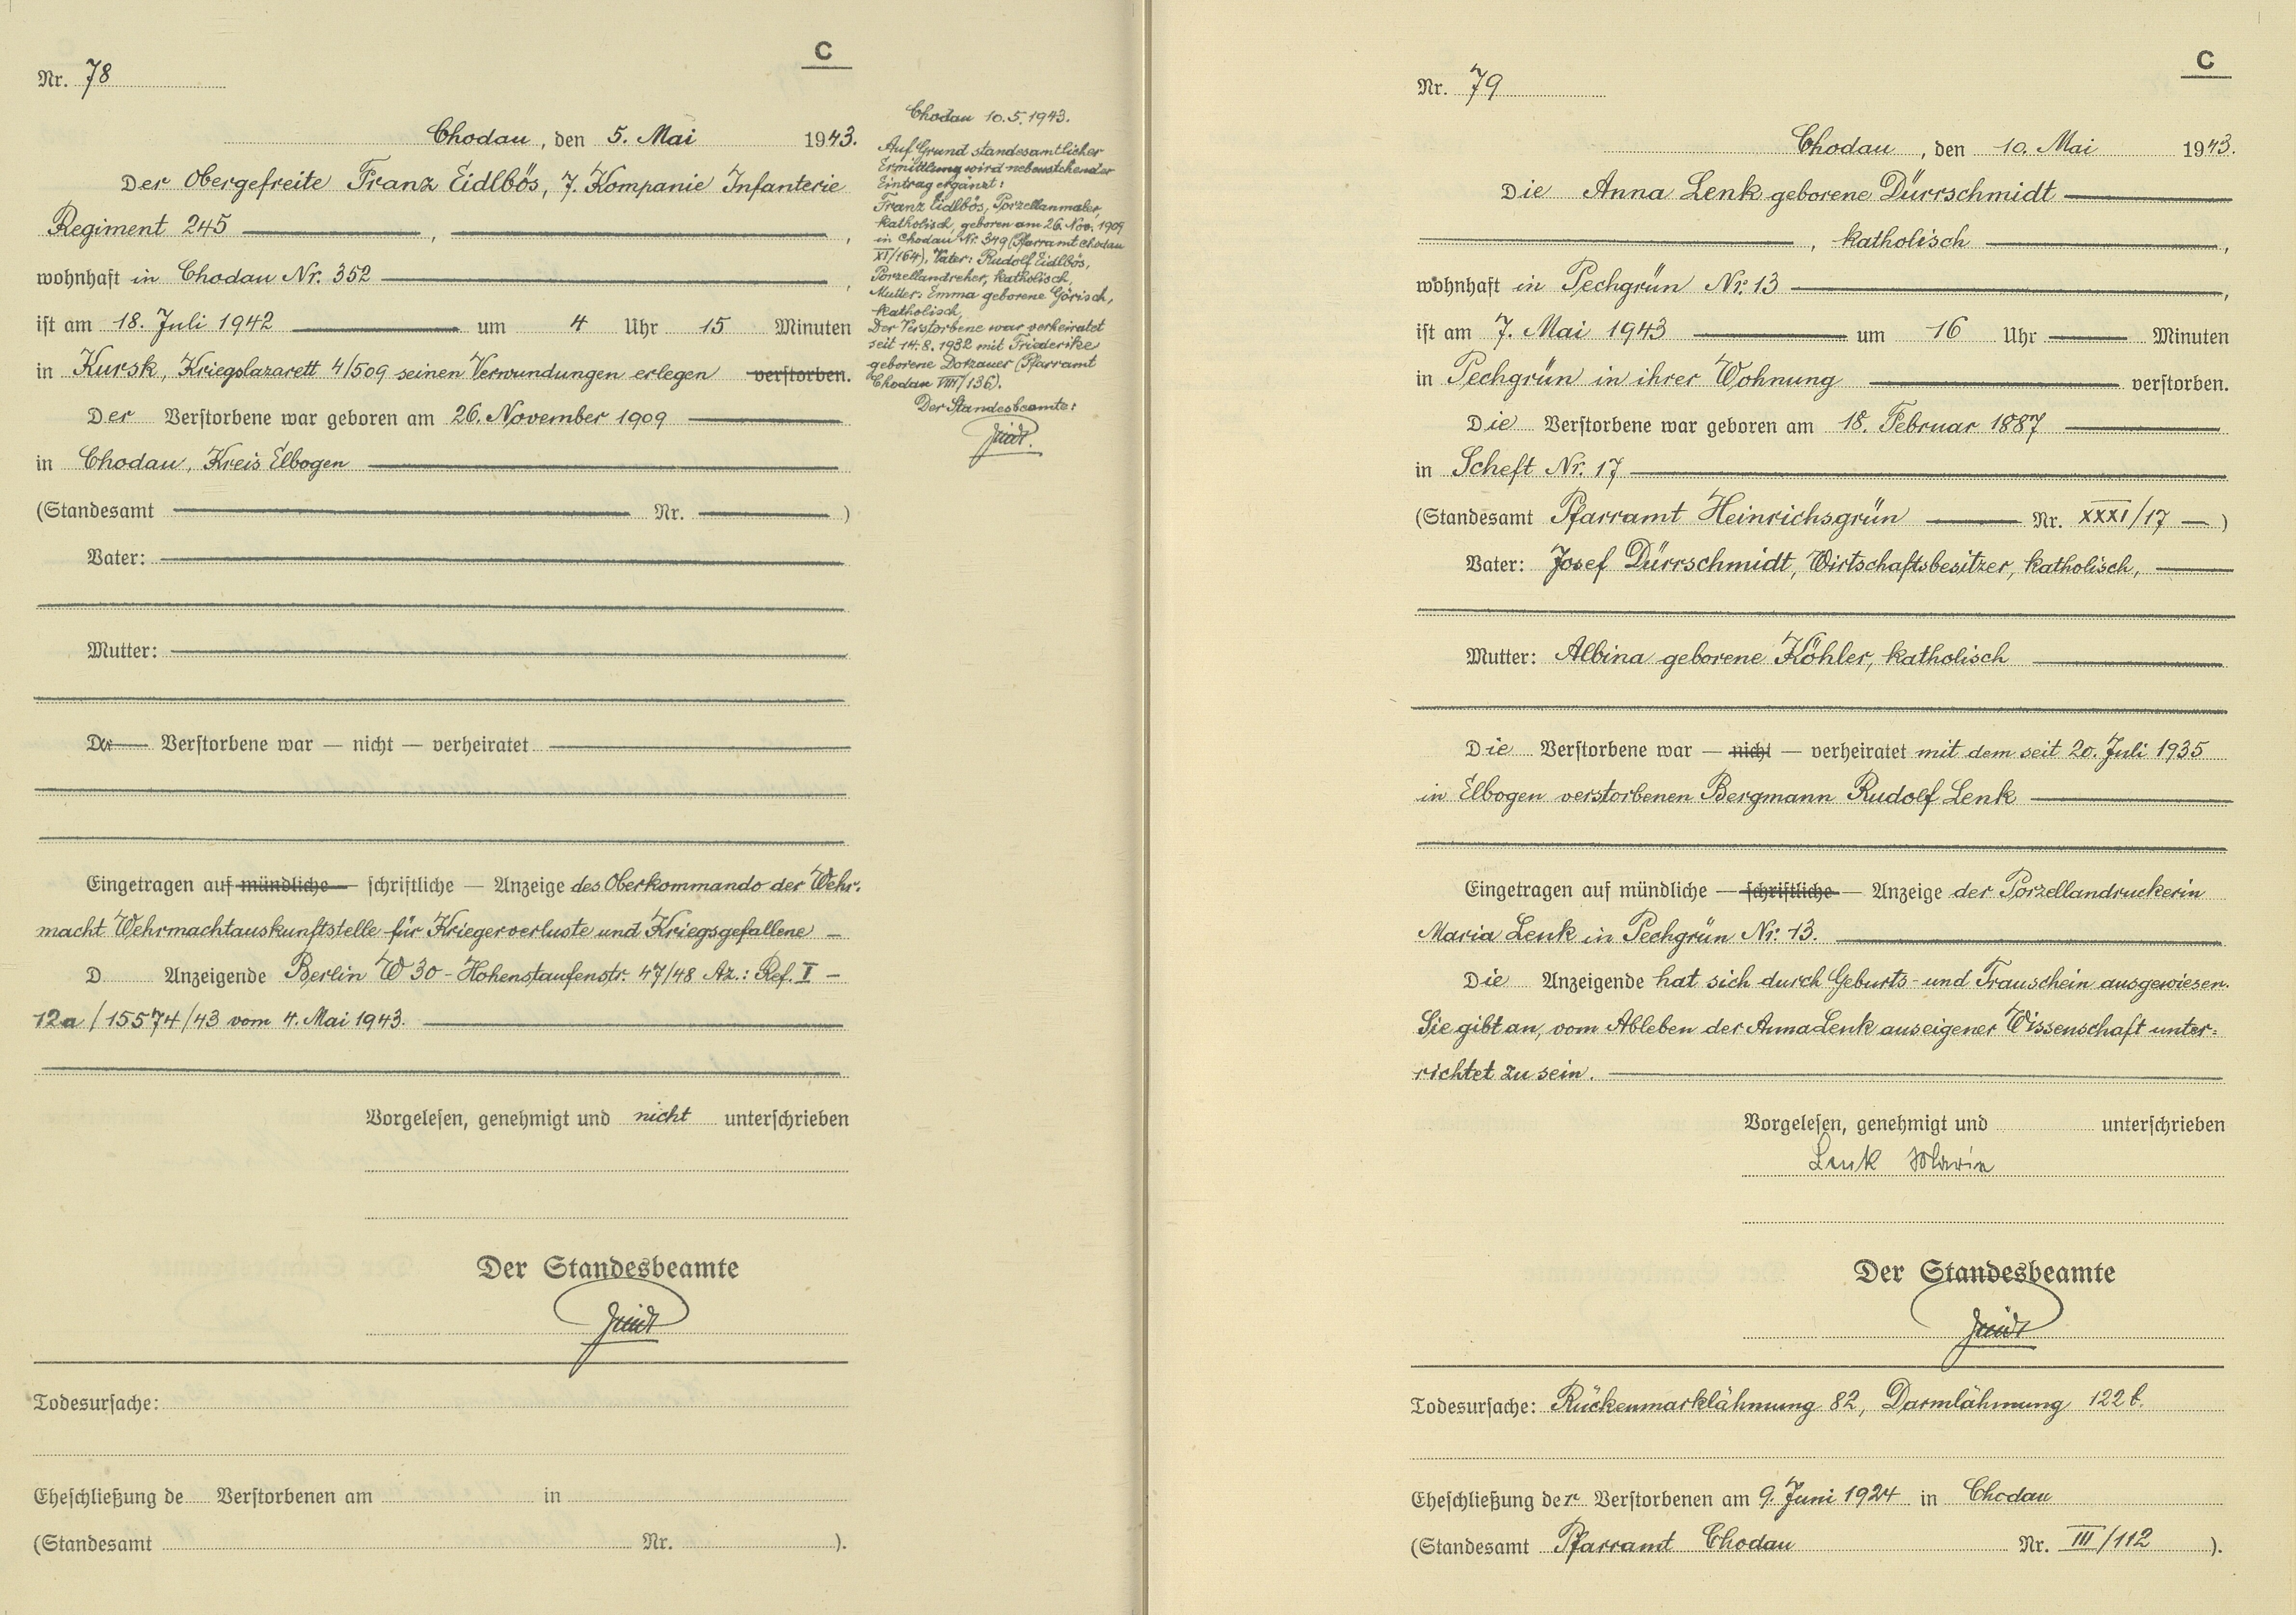 C
Nr. 78
Chodau, den 5. Mai 1943.
Der Obergefreite Franz Eidlbös, 7. Kompanie Infanterie
Regiment 245 ,
wohnhaft in Chodau Nr. 352 ,
ist am 18. Juli 1942 um 4 Uhr 15 Minuten
in Kursk, Kriegslazarett 4/509 seinen Verwundungen erlegen verstorben.
Der Verstorbene war geboren am 26. November 1909
in Chodau, Kreis Elbogen
(Standesamt Nr. )
Vater:
Mutter:
Der Verstorbene war — nicht — verheiratet
Eingetragen auf mündliche — schriftliche — Anzeige des Oberkommando der Wehr-
macht Wehrmachtauskunftstelle für Kriegerverluste und Kriegsgefallene –
D Anzeigende Berlin W 30 - Hohenstaufenstr. 47/48 Az.: Ref. I –
12a/15574/43 vom 4. Mai 1943.
Vorgelesen, genehmigt und nicht unterschrieben
Der Standesbeamte
Todesursache:
Eheschließung de Verstorbenen am in
(Standesamt Nr. ).
Chodau 10.5.1943.
Auf Grund standesamtlicher
Ermittlung wird nebenstehender
Eintrag ergänzt:
Franz Eidlbös, Porzellanmaler,
katholisch, geboren am 26. Nov. 1909
in Chodau Nr. 349 (Pfarramt Chodau
XI/164), Vater: Rudolf Eidlbös,
Porzellandreher, katholisch,
Mutter: Emma geborene Görisch,
katholisch,
Der Verstorbene war verheiratet
seit 14.8.1932 mit Friederike
geborene Dotzauer (Pfarramt
Chodau VIII/136).
Der Standesbeamte:
C
Nr. 79
Chodau, den 10. Mai 1943.
Die Anna Lenk geborene Dürrschmidt
, katholisch ,
wohnhaft in Pechgrün Nr. 13 ,
ist am 7. Mai 1943 um 16 Uhr Minuten
in Pechgrün in ihrer Wohnung verstorben.
Die Verstorbene war geboren am 18. Februar 1887
in Scheft Nr. 17
(Standesamt Pfarramt Heinrichsgrün Nr. XXXI/17 )
Vater: Josef Dürrschmidt, Wirtschaftsbesitzer, katholisch,
Mutter: Albina geborene Köhler, katholisch
Die Verstorbene war — nicht — verheiratet mit dem seit 20. Juli 1935
in Elbogen verstorbenen Bergmann Rudolf Lenk
Eingetragen auf mündliche — schriftliche — Anzeige der Porzellandruckerin
Maria Lenk in Pechgrün Nr. 13.
Die Anzeigende hat sich durch Geburts- und Trauschein ausgewiesen.
Sie gibt an, vom Ableben der Anna Lenk aus eigener Wissenschaft unter-
richtet zu sein.
Vorgelesen, genehmigt und unterschrieben
Lenk Maria
Der Standesbeamte
Todesursache: Rückenmarklähmung 82, Darmlähmung 122 b.
Eheschließung der Verstorbenen am 9. Juni 1924 in Chodau
(Standesamt Pfarramt Chodau Nr. III/112 ).